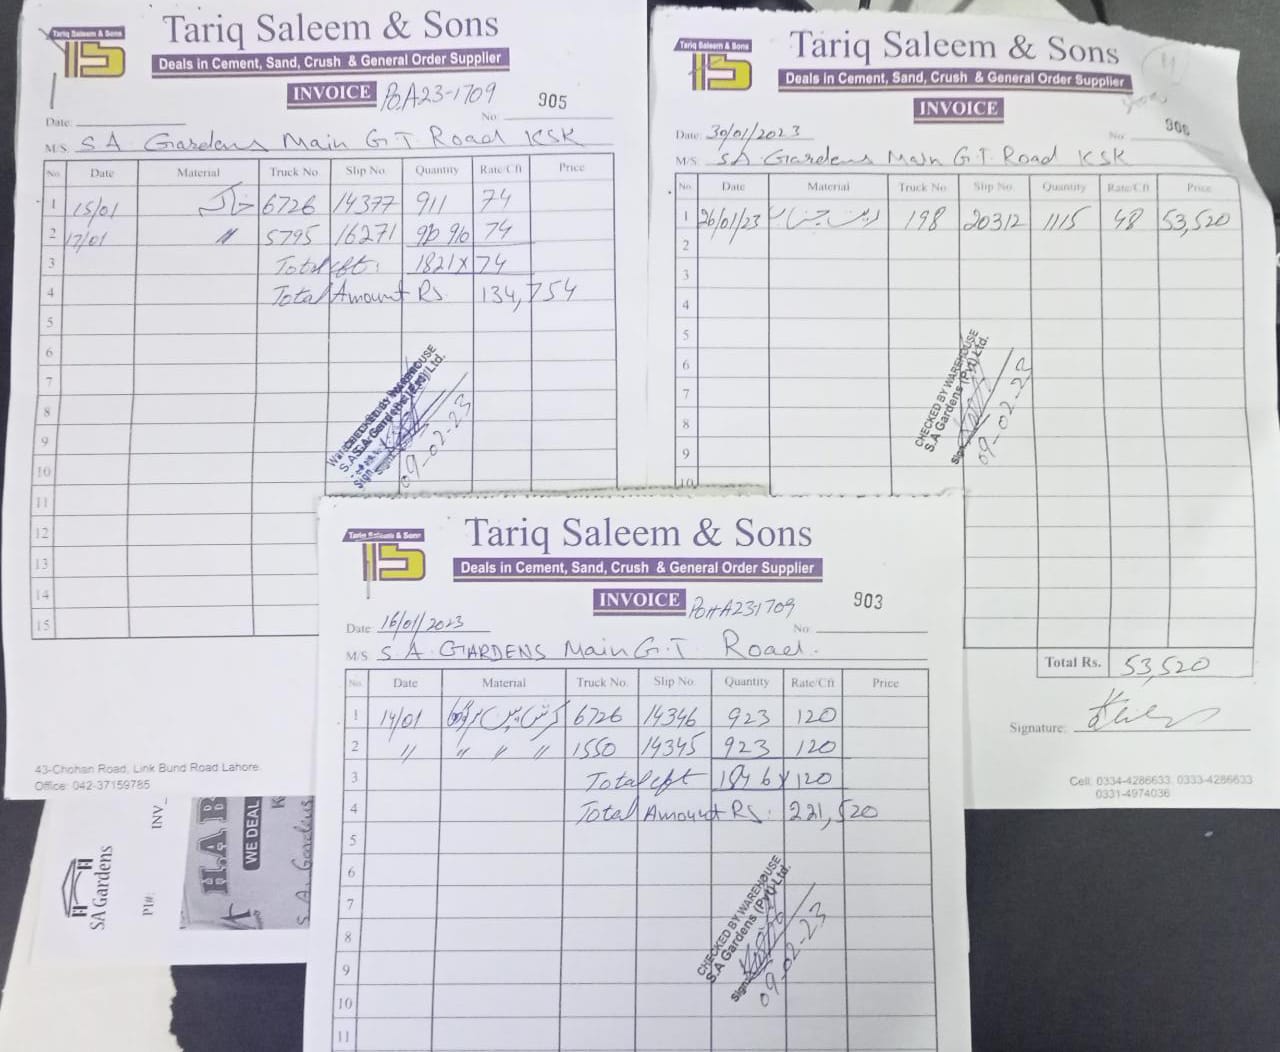 Tariq Saleem & Sons
Tariq Saleem & Sons
Deals in Cement, Sand, Crush & General Order Supplier
INVOICE POA23-1709
905
Date:
No:
M/S. S A Gardens Main G T Road KSK
No. Date Material Truck No Slip No. Quantity Rate/Cft Price
1 15/01 خاکہ 6726 14377 911 74
2 17/01 〃 5795 16271 910 74
3 Total cft: 1821 x 74
4 Total Amount Rs 134,754
5
6
7
8
9
10
11
12
13
14
15
CHECKED BY WAREHOUSE
S.A Gardens (Pvt) Ltd.
Sign
09-02-23
43-Chohan Road, Link Bund Road Lahore.
Office: 042-37159785
Tariq Saleem & Sons
Tariq Saleem & Sons
Deals in Cement, Sand, Crush & General Order Supplier
INVOICE
906
Date: 30/01/2023
No:
M/S. SA Gardens Main G.T. Road KSK
No. Date Material Truck No. Slip No. Quantity Rate/Cft Price
1 26/01/23 ریت چناب 198 20312 1115 48 53,520
2
3
4
5
6
7
8
9
10
CHECKED BY WAREHOUSE
S.A Gardens (Pvt) Ltd.
Sign
09-02-23
Total Rs. 53,520
Signature:
Cell: 0334-4286633, 0333-4286633
0331-4974036
Tariq Saleem & Sons
Tariq Saleem & Sons
Deals in Cement, Sand, Crush & General Order Supplier
INVOICE PO#A231709
903
Date: 16/01/2023
No:
M/S. S A GARDENS Main G.T Road.
No. Date Material Truck No. Slip No. Quantity Rate/Cft Price
1 14/01 کرش 6726 14346 923 120
2 〃 〃 〃 〃 1550 14345 923 120
3 Total cft 1846 x 120
4 Total Amount Rs. 221,520
5
6
7
8
9
10
11
CHECKED BY WAREHOUSE
S.A Gardens (Pvt) Ltd.
Sign
09-02-23
SA Gardens
PI#:
INV_
HAB
WE DEAL
S. A. Gardens